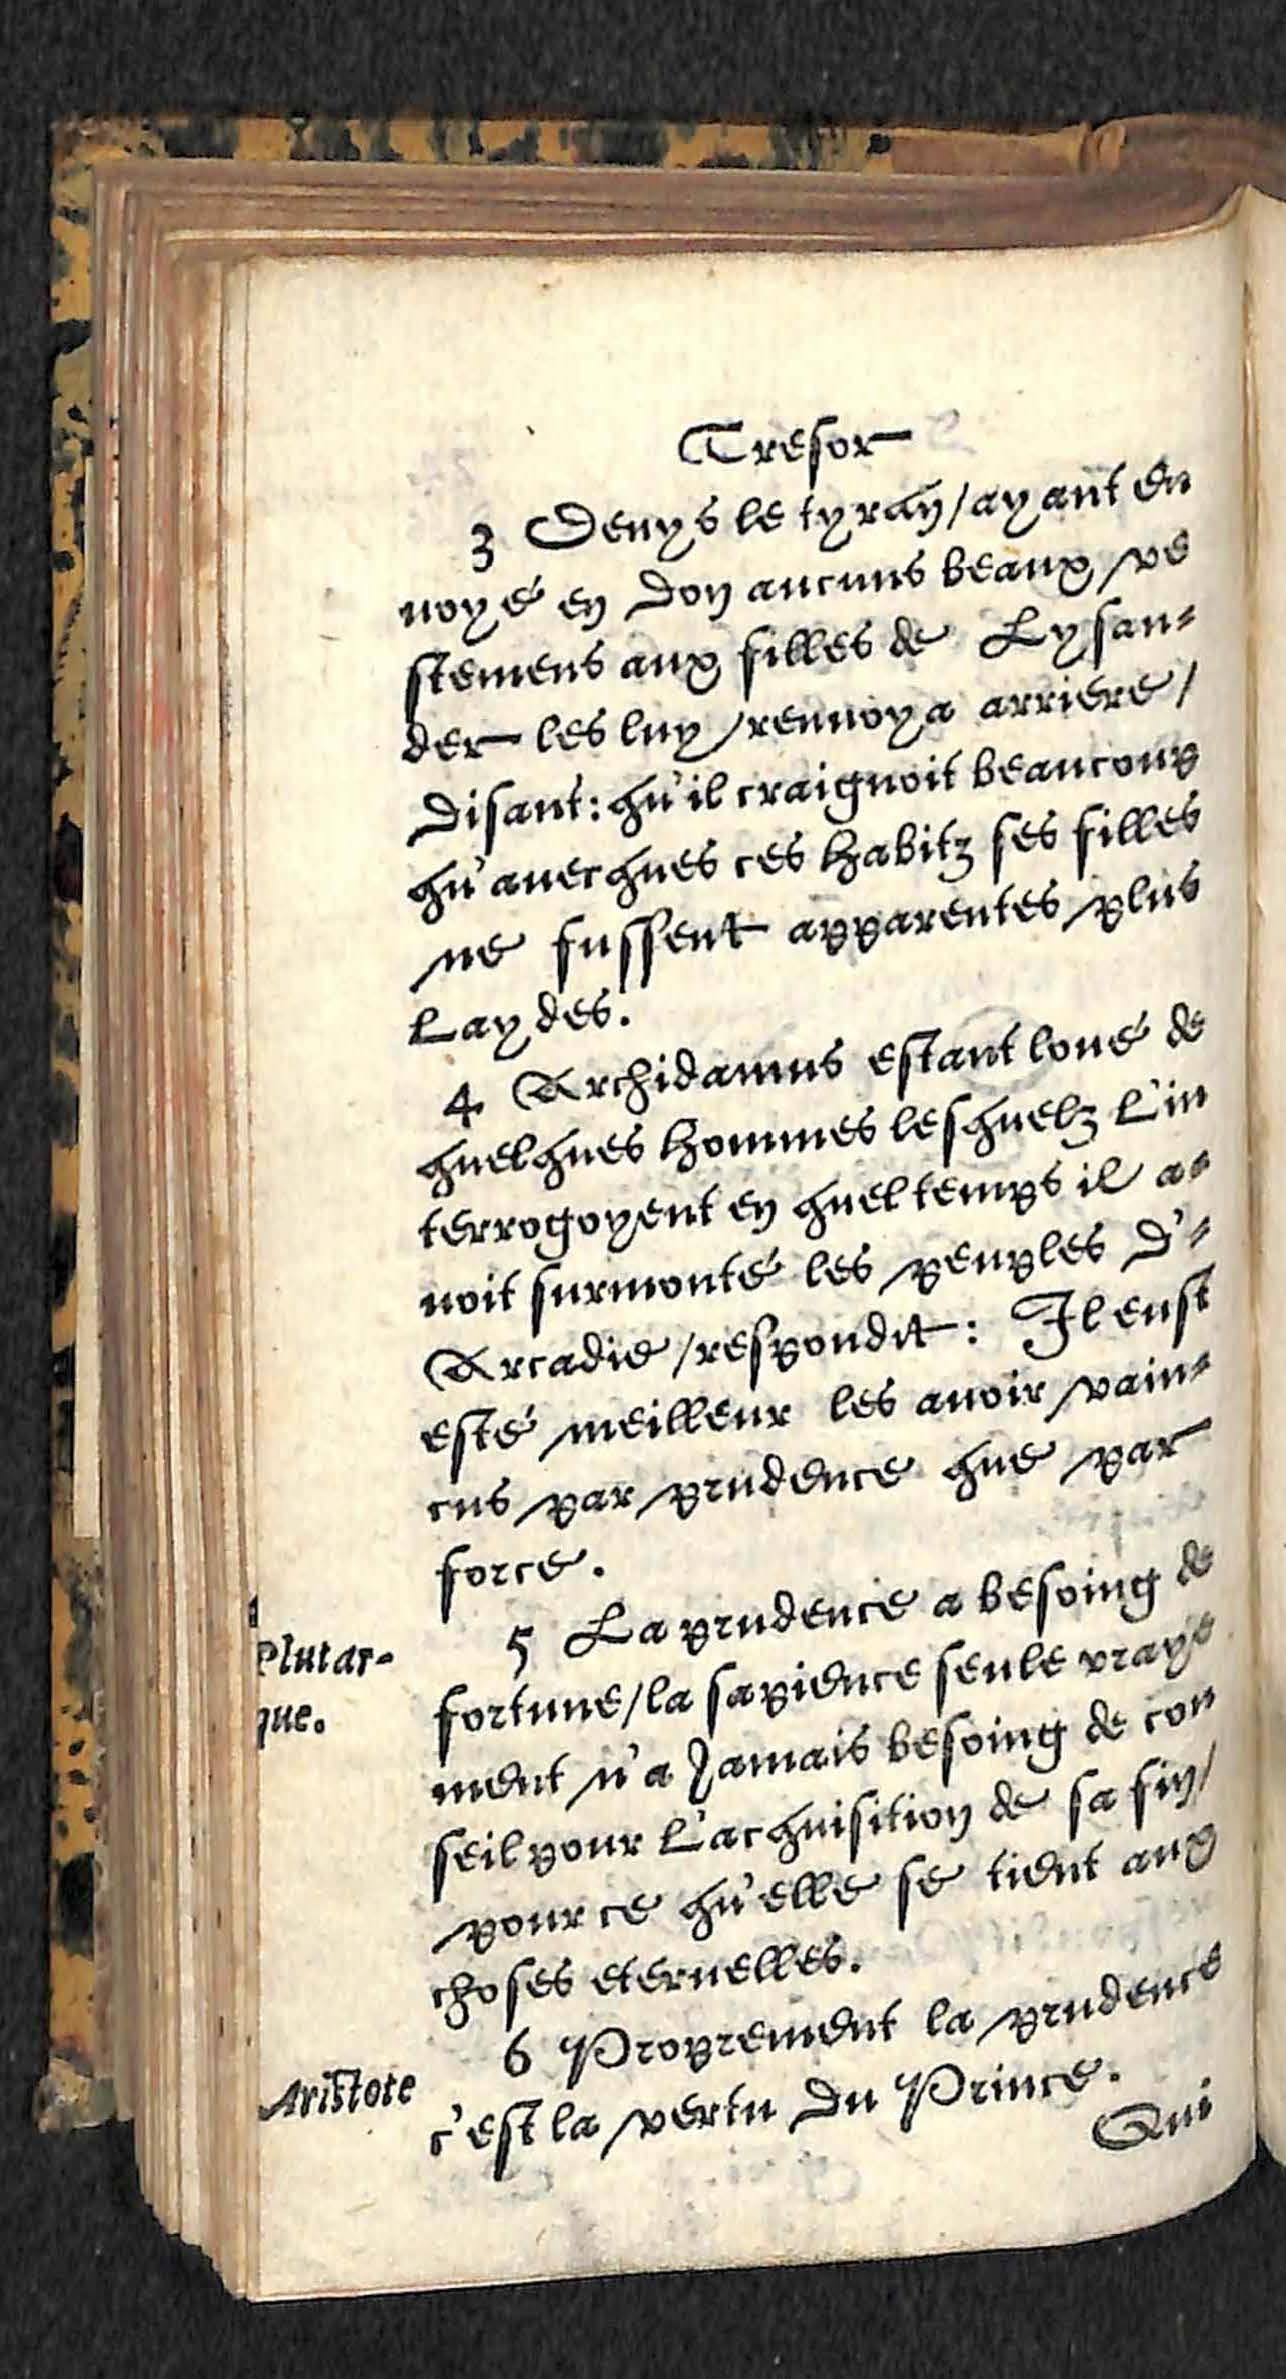 Tresor
3 Denys le tyran/ayant en
uoyé en don aucuns beaux ve
stemens aux filles de Lysan=
der les luy renuoya arriere/
disant: qu'il craignoit beaucoup
qu'auecques ces habitz ses filles
ne fussent apparentes plus
laydes.
4 Archidamus estant loué de
quelques hommes lesquelz l'in
terrogoyent en quel temps il a=
uoit surmonté les peuples d'=
Arcadie/respondit: Il eust
esté meilleur les auoir vain=
cus par prudence que par
force.
Plutar-
que.
5 La prudence a besoing de
fortune/la sapience seule vraye
ment n'a Jamais besoing de con
seil pour l'acquisition de sa fin/
pource qu'elle se tient aux
choses eternelles.
6 Proprement la prudence
Aristote
c'est la vertu du Prince.
Qui